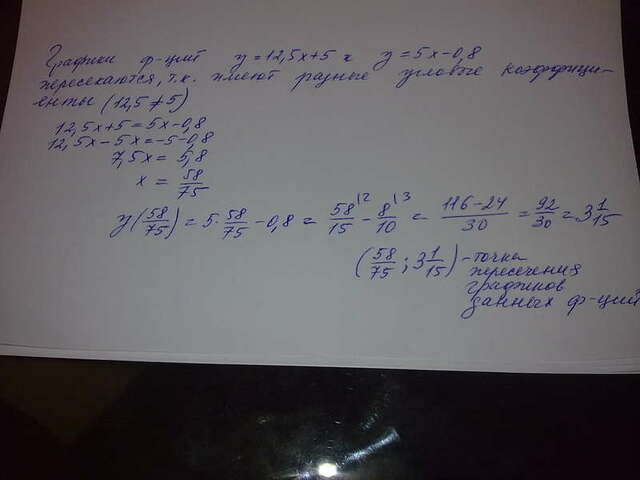 Графики ф-ций y=12,5x+5 и y=5x-0,8
пересекаются, т.к. имеют разные угловые коэффици-
енты (12,5≠5)
12,5x+5=5x-0,8
12,5x-5x=-5-0,8
7,5x=5,8
x=58/75
y(58/75)=5·58/75-0,8=58/15^(2-8/10^(3=(116-24)/30=92/30=3 1/15
(58/75; 3 1/15)-точка
пересечения
графиков
данных ф-ций